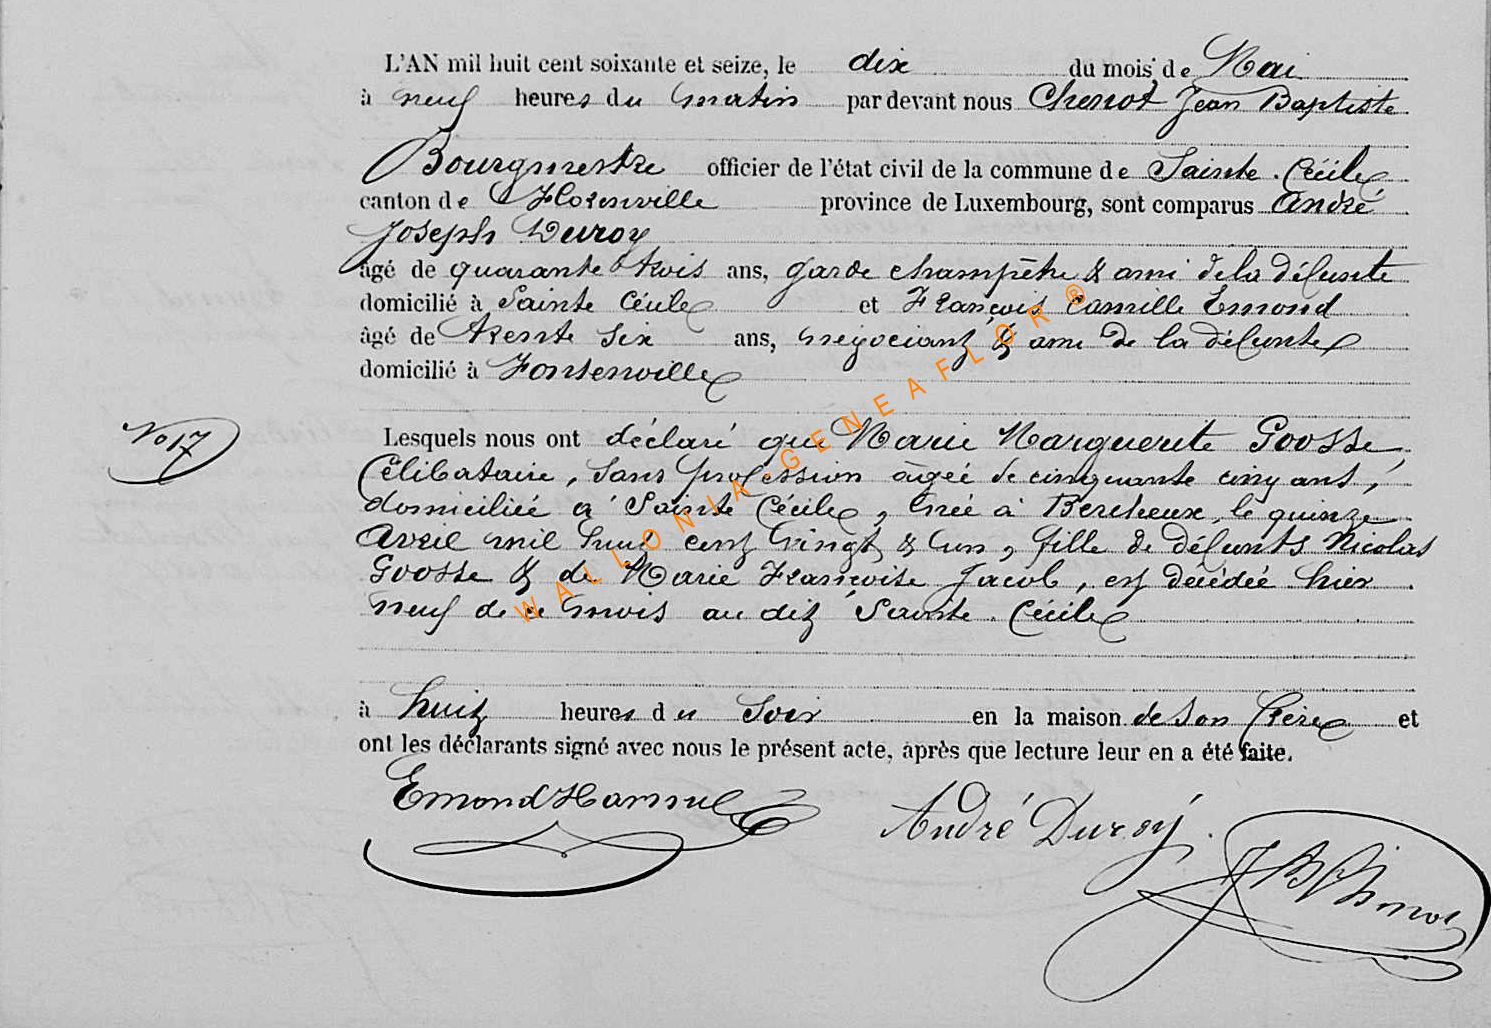 L'AN mil huit cent soixante et seize, le dix du mois de Mai
à neuf heures du matin par devant nous Chenot Jean Baptiste
Bourgmestre officier de l'état civil de la commune de Sainte Cécile
canton de Florenville province de Luxembourg, sont comparus André
Joseph Duroy
âgé de quarante trois ans, garde champêtre & ami de la défunte
domicilié à Sainte Cécile et François Camille Emond
âgé de trente six ans, négociant & ami de la défunte
domicilié à Fontenoille
No 17
Lesquels nous ont déclaré que Marie Marguerite Goosse,
Célibataire, sans profession âgée de cinquante cinq ans,
domiciliée à Sainte Cécile, née à Bercheux, le quinze
Avril mil huit cent vingt & un, fille de défunts Nicolas
Goosse & de Marie Françoise Jacob, est décédée hier
neuf de ce mois au dit Sainte Cécile
à huit heures du soir en la maison de son frère et
ont les déclarants signé avec nous le présent acte, après que lecture leur en a été faite.
Emond André Duroÿ.
JB Chenot
WALLONIA-GENEAFLOR®